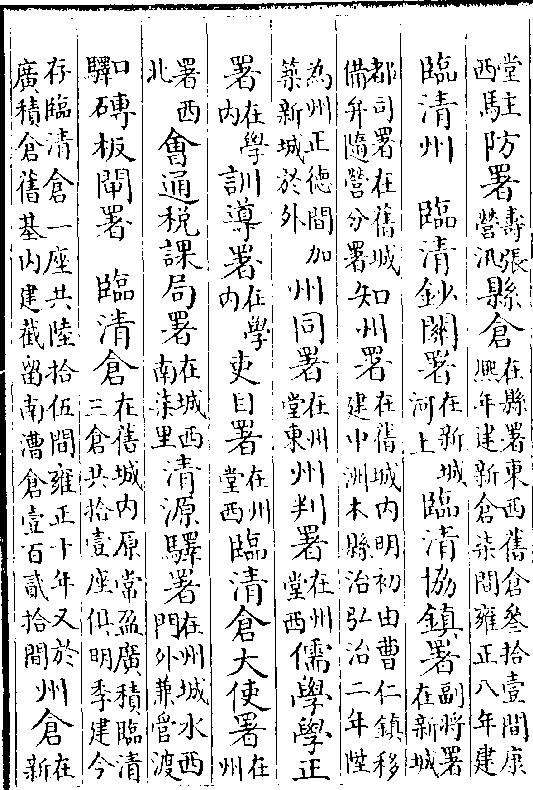 堂西駐防署壽張營汛縣倉在縣署東西舊倉叄拾壹間康熙年建新倉柒間雍正八年建
臨清州　臨清鈔關署在新城河上臨清協鎮署副將署在新城
都司署在舊城備弁隨營分署知州署在舊城內明初由曹仁鎮移建中洲本縣治弘治二年陞
為州正德間加築新城於外州同署在州堂東州判署在州堂西儒學學正
署在學內訓導署在學內吏目署在州堂西臨清倉大使署在州
署西北會通稅課局署在城西南柒里清源驛署在州城水西門外兼管渡
口驛磚板閘署　臨清倉在舊城內原常盈廣積臨清三倉共拾壹座俱明季建今
存臨清倉一座共陸拾伍間雍正十年又於廣積倉舊基內建截留南漕倉壹百貳拾間州倉在新